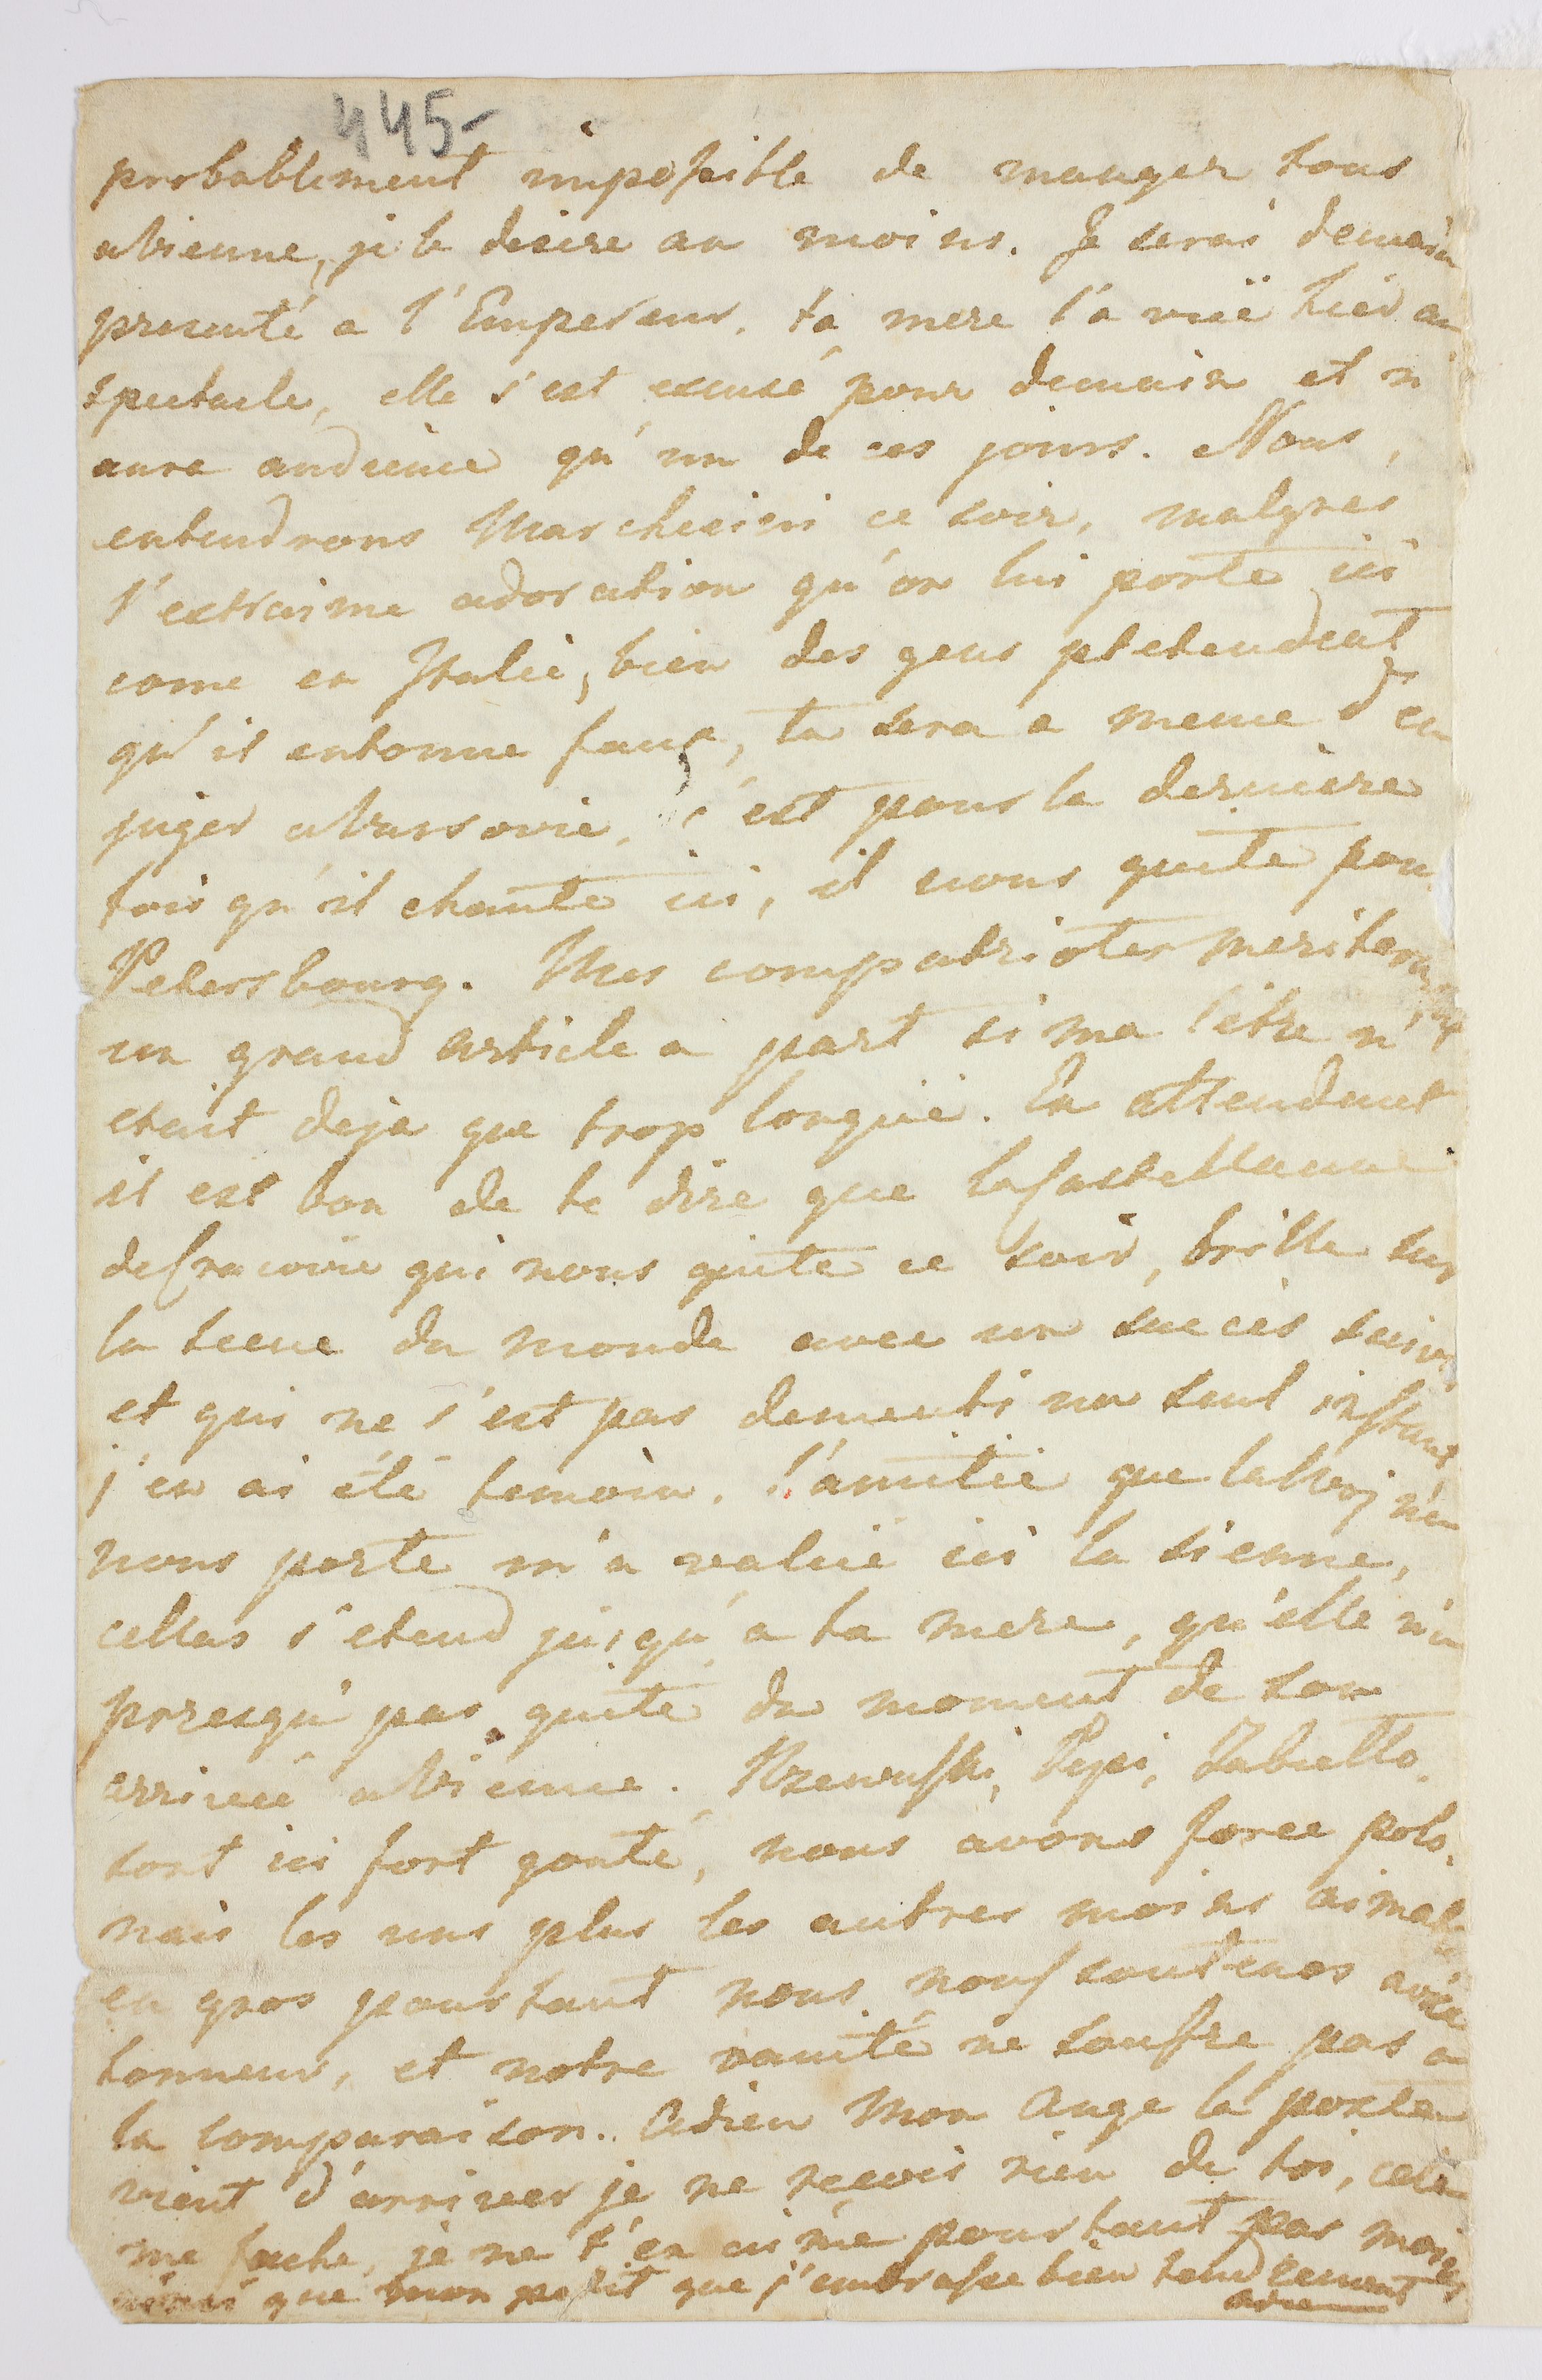 445-
probablement impossible de manger tous
a Vienne, je le desire au moins. Je serai demain
presenté a l'Empereur, ta mere l'a vuë hiér au
spectacle, elle s'est excusé pour demain et n'
aura audience qu'un de ces jours. Nous
entendrons Marchesini ce soir, malgres
l'extraime adoration qu'on lui porte ici
come en Italie, bien des gens pretendent
qu'il entonne faux, tu sera a meme d'en
juger a Varsovie, c'est pour la derniere
fois qu'il chante ici, il nous quite pour
Petersbourg. Mes compatriotes meriteroient
un grand article a part si ma lettre n'
etait deja que trop longuë. En attendant
il est bon de te dire que la Castellanne
de Cracovie qui nous quite ce soir, brille sur
la scene du monde avec un succès suivi
et qui ne s'est pas dementi un seul instant
j'en ai été temoin. l'amitié que
nous porte m'a valuë ici la sienne,
cellas s'etend jusqu'a ta mere, qu'elle n'a
presqu' pas quité du moment de son
arriveé a Vienne. Rzewuski, Pepi,
sont ici fort gouté, nous avons force polo-
nais les uns plus les autres moins aimable
en gros pourtant nous nous soutenos avec
honneur, et notre vanité ne soufre pas a
la comparaison. Adieu Mon Ange la poste
vient d'arriver je ne reçois rien de toi, cela
me fache, je ne t'en aime pourtant pas moins
ainsi que mon petit que j'embrasse bien tendrement
adieu